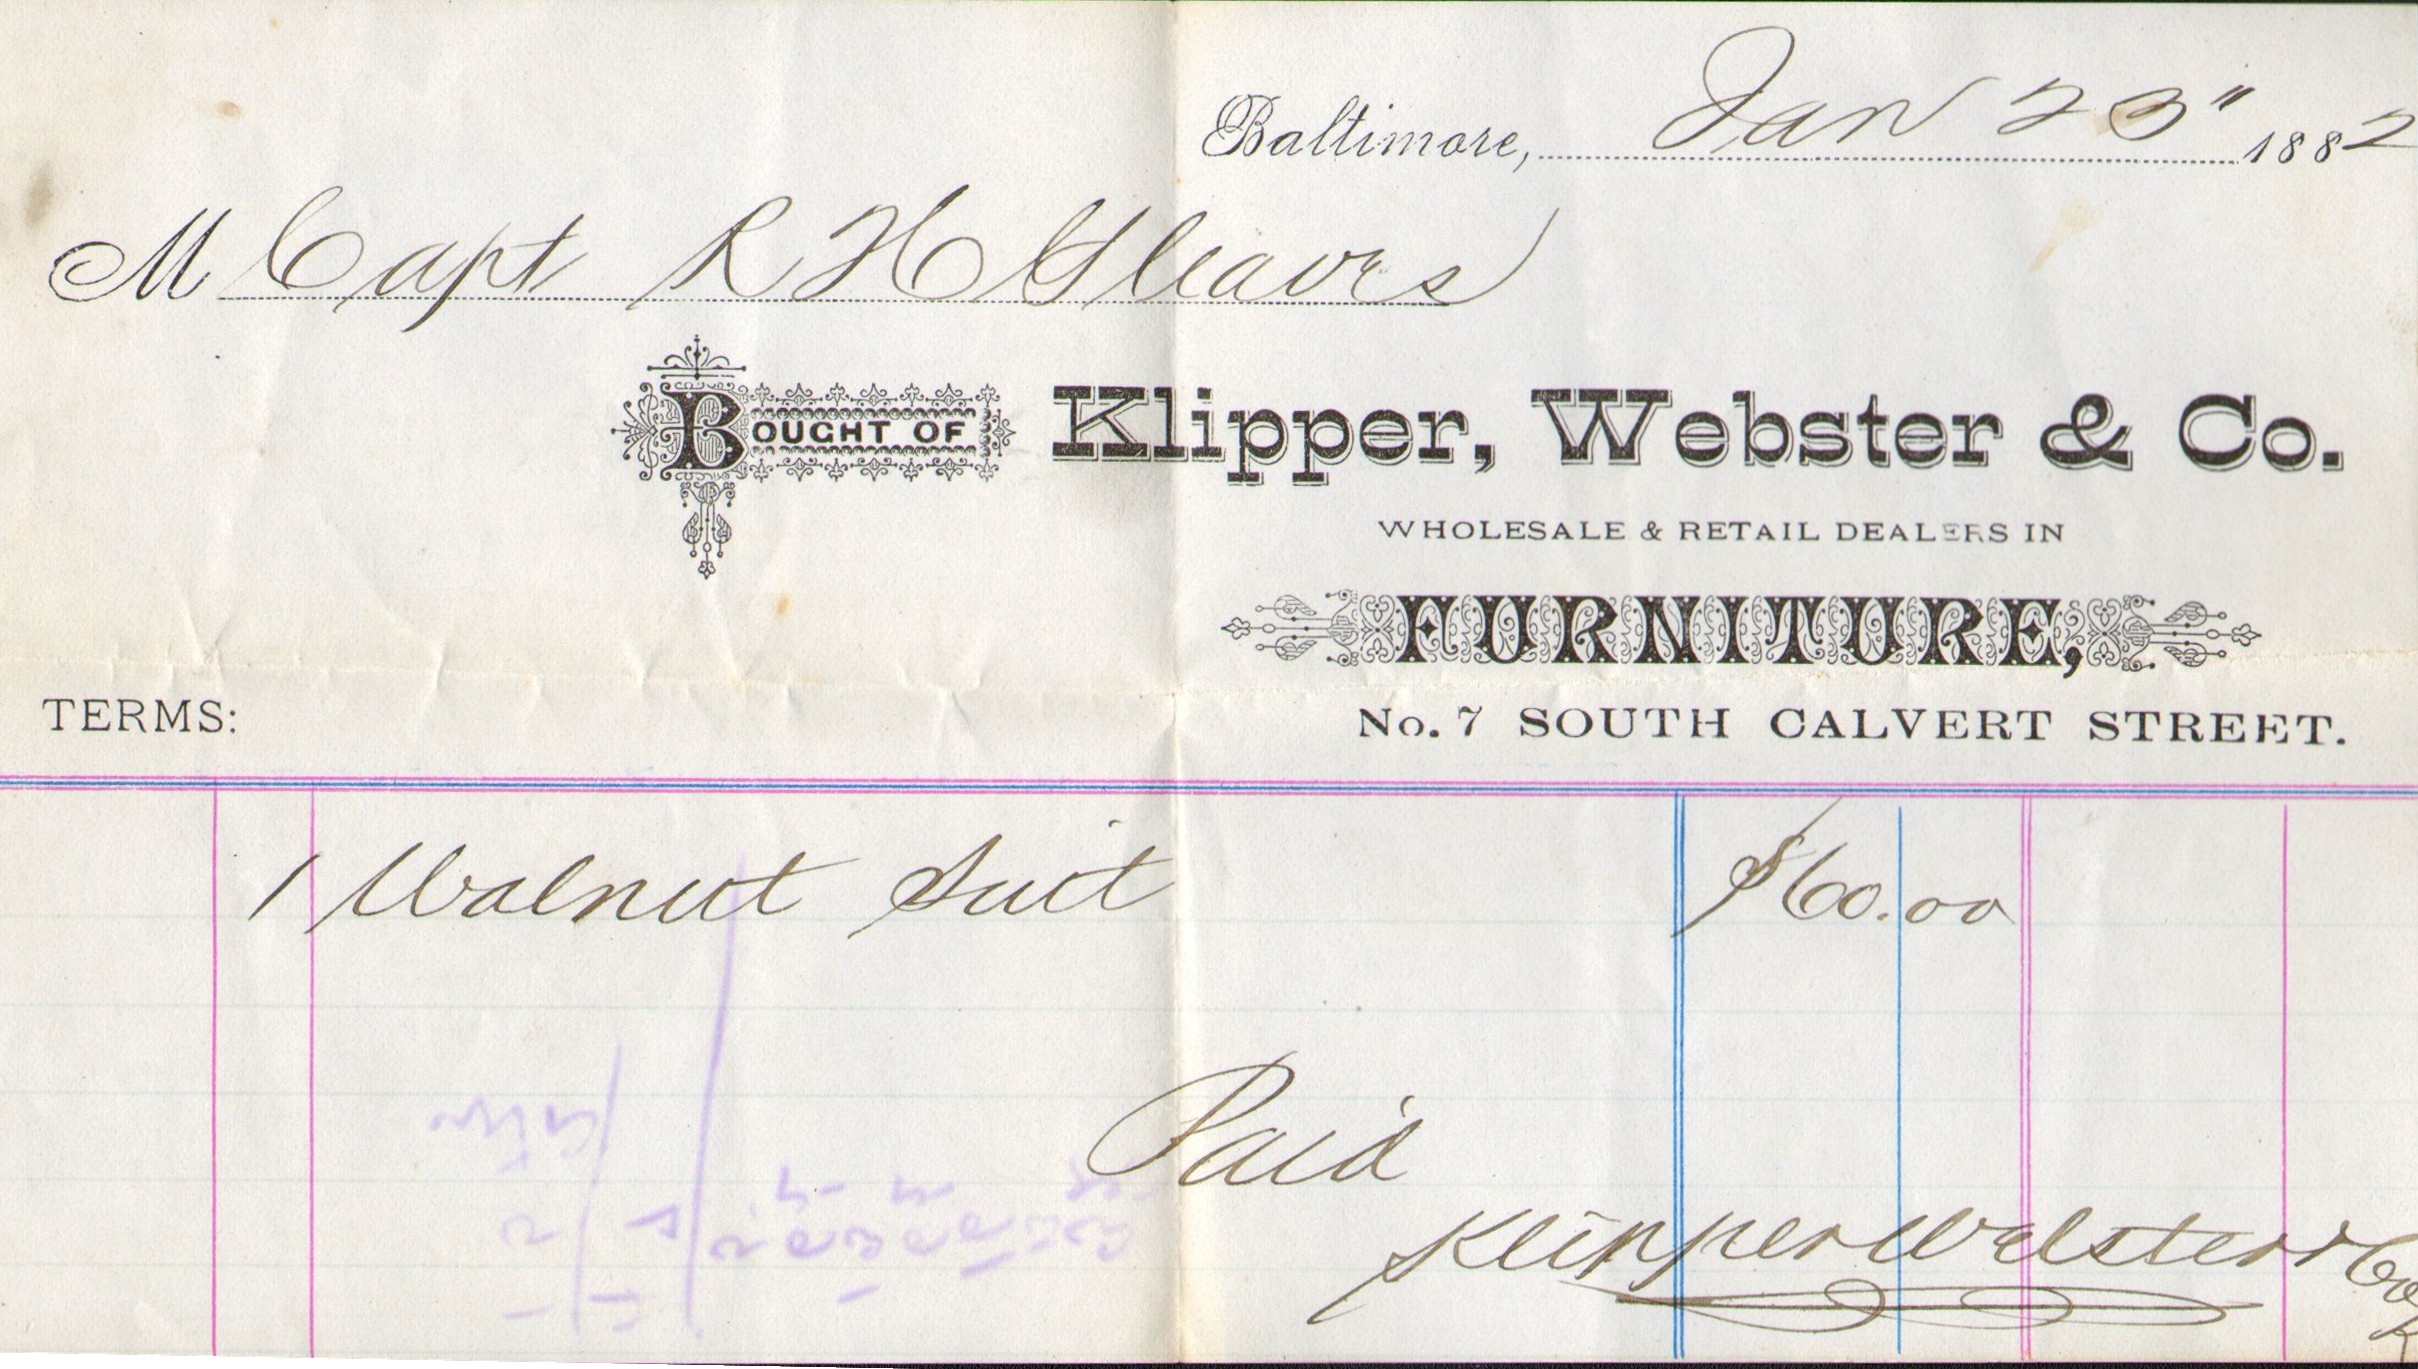 Baltimore, Jan 23" 1882
M Capt R H Gleaves
BOUGHT OF Klipper, Webster & Co.
WHOLESALE & RETAIL DEALERS IN
FURNITURE,
TERMS: No. 7 SOUTH CALVERT STREET.
1 Walnut Suit $60.00
Paid
Klipper Webster & Co